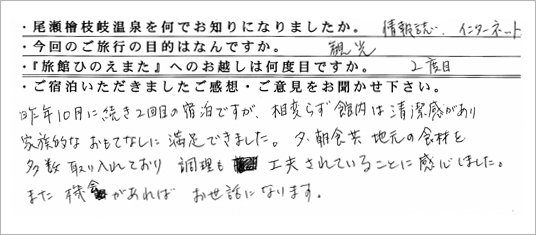 ・尾瀬檜枝岐温泉を何でお知りになりましたか。 情報誌、インターネット
・今回のご旅行の目的はなんですか。 観光
・『旅館ひのえまた』へのお越しは何度目ですか。 2度目
・ご宿泊いただきましたご感想・ご意見をお聞かせ下さい。
昨年10月に続き2回目の宿泊ですが、相変らず館内は清潔感があり
家族的なおもてなしに満足できました。夕、朝食共地元の食材を
多数取り入れており調理も工夫されていることに感心しました。
また機会があればお世話になります。